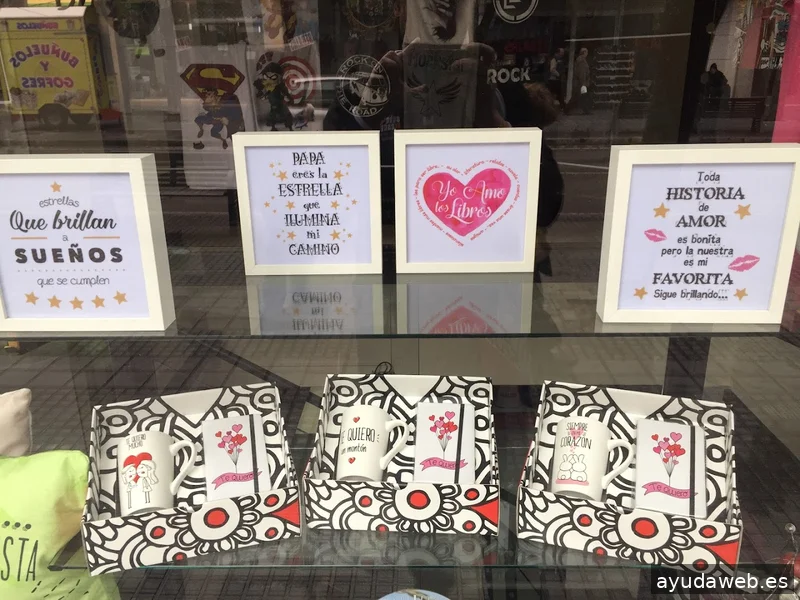 BUÑUELOS
Y
GOFRES
ROCK
estrellas
Que brillan
a
SUEÑOS
que se cumplen
PAPÁ
eres la
ESTRELLA
que
ILUMINA
mi
CAMINO
Yo Amo
los Libros
Toda
HISTORIA
de
AMOR
es bonita
pero la nuestra
es mi
FAVORITA
Sigue brillando...
CAMINO
TE QUIERO
MUCHO
TE QUIERO
TE QUIERO
un montón
TE QUIERO
SIEMPRE
CORAZÓN
TE QUIERO
...
STA
ayudaweb.es